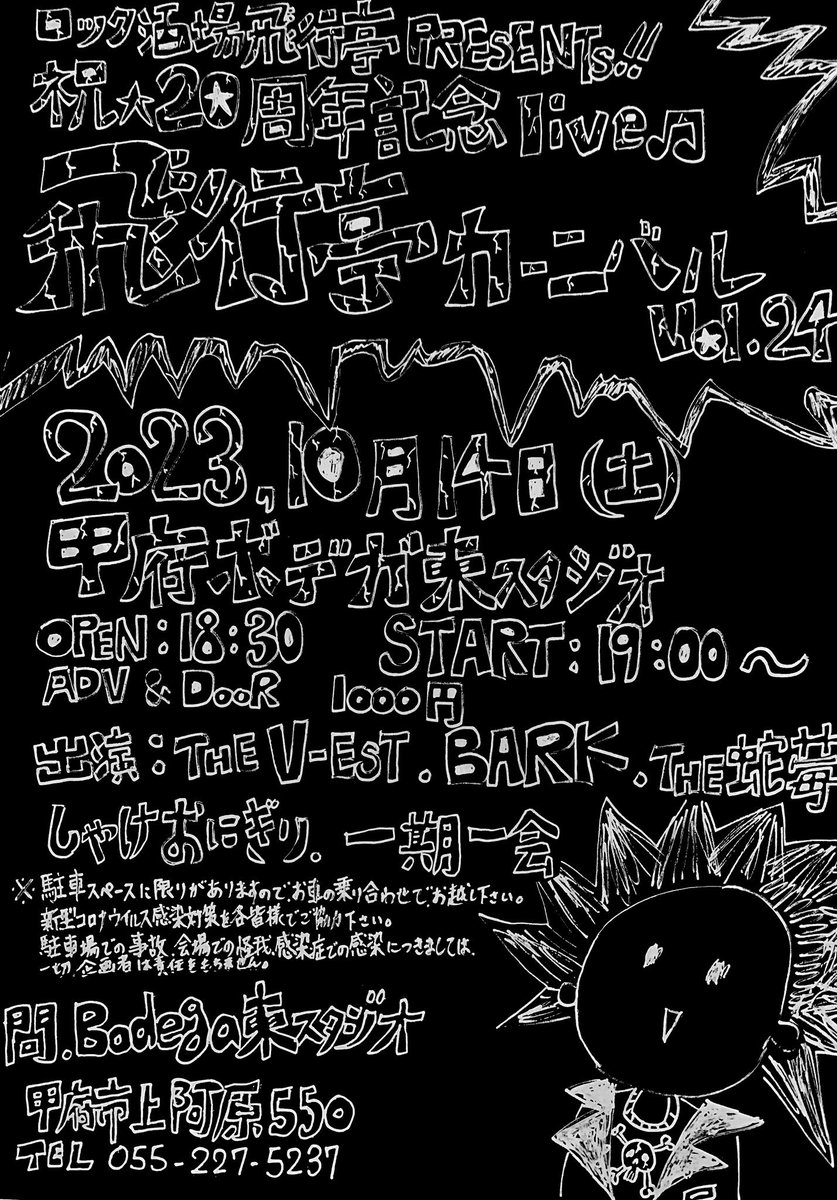 ロック酒場飛行亭 PRESENTS!!
祝★20周年記念 live♫
飛行亭カーニバル
Vol.24
2023,10月14日(土)
甲府ボデガ東スタジオ
OPEN:18:30 START:19:00〜
ADV & DOOR 1000円
出演:THE V-EST.BARK.THE蛇苺
しゃけおにぎり.一期一会
※駐車スペースに限りがありますので、お車の乗り合わせでお越し下さい。
新型コロナウイルス感染対策を各皆様でご協力下さい。
駐車場での事故、会場での怪我、感染症での感染につきましては、
一切、企画者は責任をもちません。
問.Bodega東スタジオ
甲府市上阿原550
TEL 055-227-5237